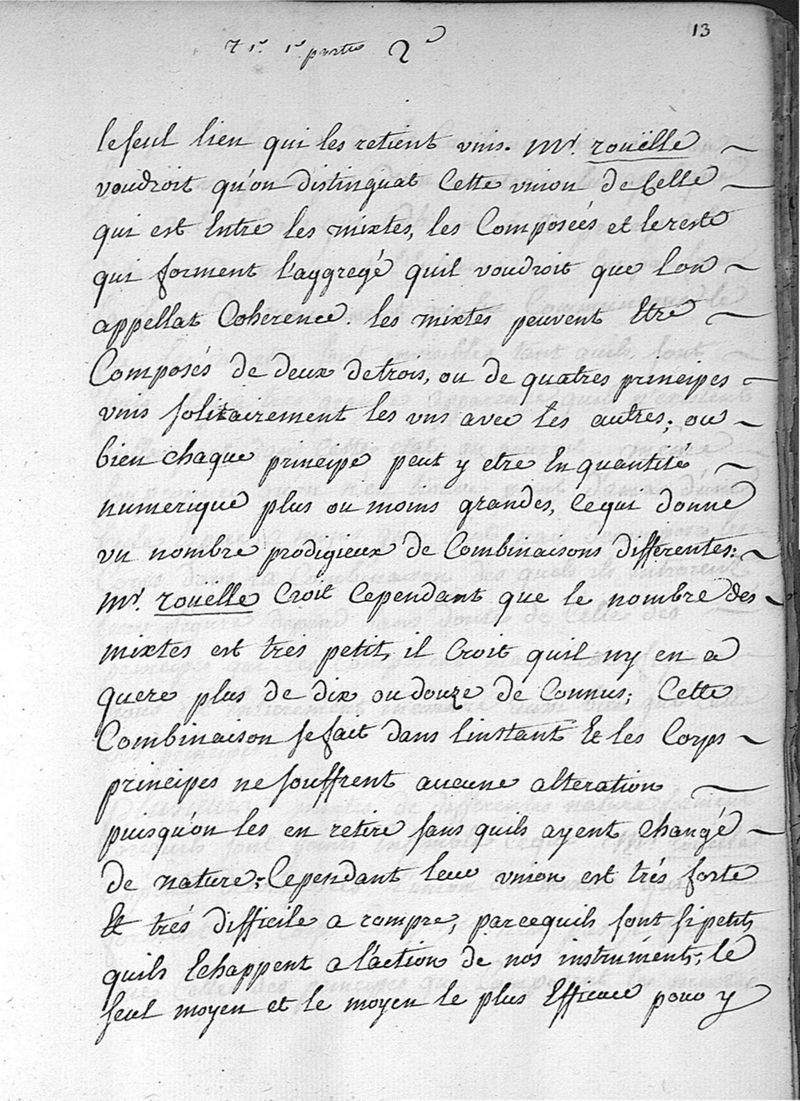 13
1re partie 2e
le seul lien qui les retient unis. Mr. rouëlle
voudroit qu'on distinguat Cette union de Celle
qui est Entre les mixtes, les Composées et le reste
qui forment l'aggregé quil voudroit que lon
appellat Coherence. les mixtes peuvent Etre
Composés de deux de trois, ou de quatres principes
unis solitairement les uns avec les autres; ou
bien chaque principe peut y etre En quantité
numerique plus ou moins grandes, ce qui donne
un nombre prodigieux de Combinaisons differentes:
Mr. rouelle Croit Cependant que le nombre des
mixtes est tres petit, il Croit quil ny en a
quere plus de dix ou douze de Connus; Cette
Combinaison se fait dans l'instant Et les Corps
principes ne souffrent aucune alteration
puisqu'on les en retire sans quils ayent Changé
de nature; Cependant leur union est trés forte
Et trés difficile a rompre, parcequils sont si petits
quils Echappent a l'action de nos instruments; le
seul moyen et le moyen le plus Efficace pour y